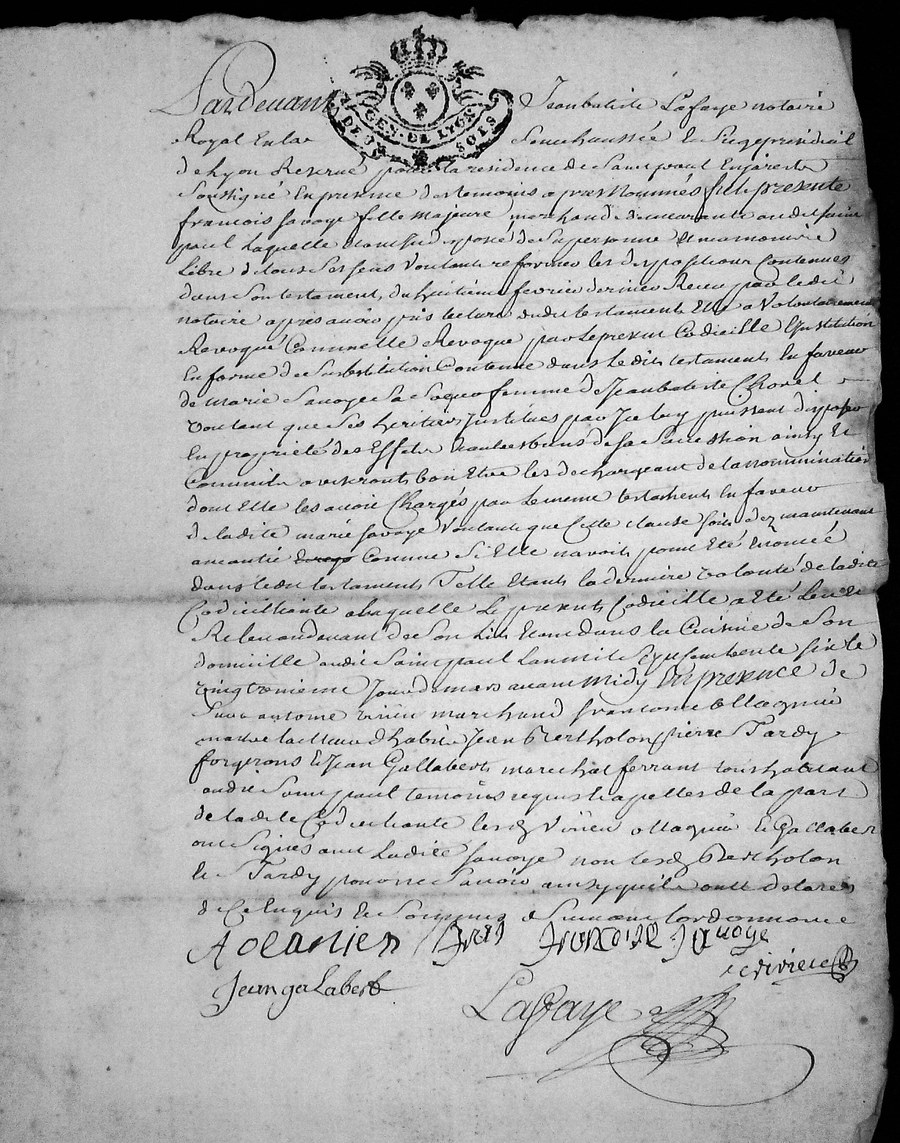 Pardevant Jean batiste Lafaye notaire
GEN. DE LYON
DE SOLS
Royal En la Senechaussée & Siege presidial
de Lyon Reservé pour la residence de Saint paul En jarest
Soussigné En presence des temoins apres Nommés fut presente
francoise Savoye fille majeure marchande demeurante audit saint
paul Laquelle Etant disposé de sa personne Et memoire
Libre de tous Ses sens Voulant reformer les dispositions Contenues
dans Son testament du huitieme fevrier dernier Receu par ledit
notaire apres avoir pris lecture dudit testament Elle a Volontairement
Revoqué Comme Elle Revoque par le present Codicille L'institution
En forme de Substitution Contenue dans ledit testament En faveur
de Marie Savoye Sa Soeur femme de Jean batiste Chorel
Voulant que Ses heritiers Institues par Iceluy puissent disposer
En proprieté des Effets de sa Succession ainsy Et
Comme ils aviseront bon Etre les dechargeant de la nommination
dont Elle les avoit Chargés par le meme testament En faveur
de ladite marie Savoye Voulant que Cette Clause Soit dez maintenant
aneantie Comme Si Elle n'avoit point Eté Enoncée
dans ledit testament Telle Etant la derniere volonté de ladite
Codicillante a laquelle le present Codicille a Eté Leu &
Releu audevant de Son lit Etant dans la Cuisine de Son
domicille audit Saint paul L'an mil Sept Cent trente Six le
vingt onzieme jour de mars avant Midy En presence de
Sieur antoine Virieu marchand francois Ollagnié
maitre tailleur d'habits Jean Bertholon pierre Tardy
forgerons & Jean Gallabert marechal ferrant tous habitant
audit Saint paul temoins requis & apelles de la part
de ladite Codicillante lesdits Virieu ollagnié & Gallabert
ont Signés avec Ladite Savoye non lesdits Bertholon
& Tardy pour ne Savoir ainsy qu'ils ont declarés
de Ce Enquis & Sommés Suivant l'ordonnance
francoise Savoye
Jean galabert
Lafaye